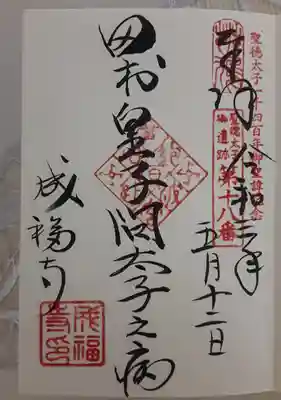 聖徳太子一千四百年御聖諱記念
聖徳太子御遺跡第十八番
奉拝 令和三年
五月十二日
田村皇子問太子之病
成福寺
成福寺印